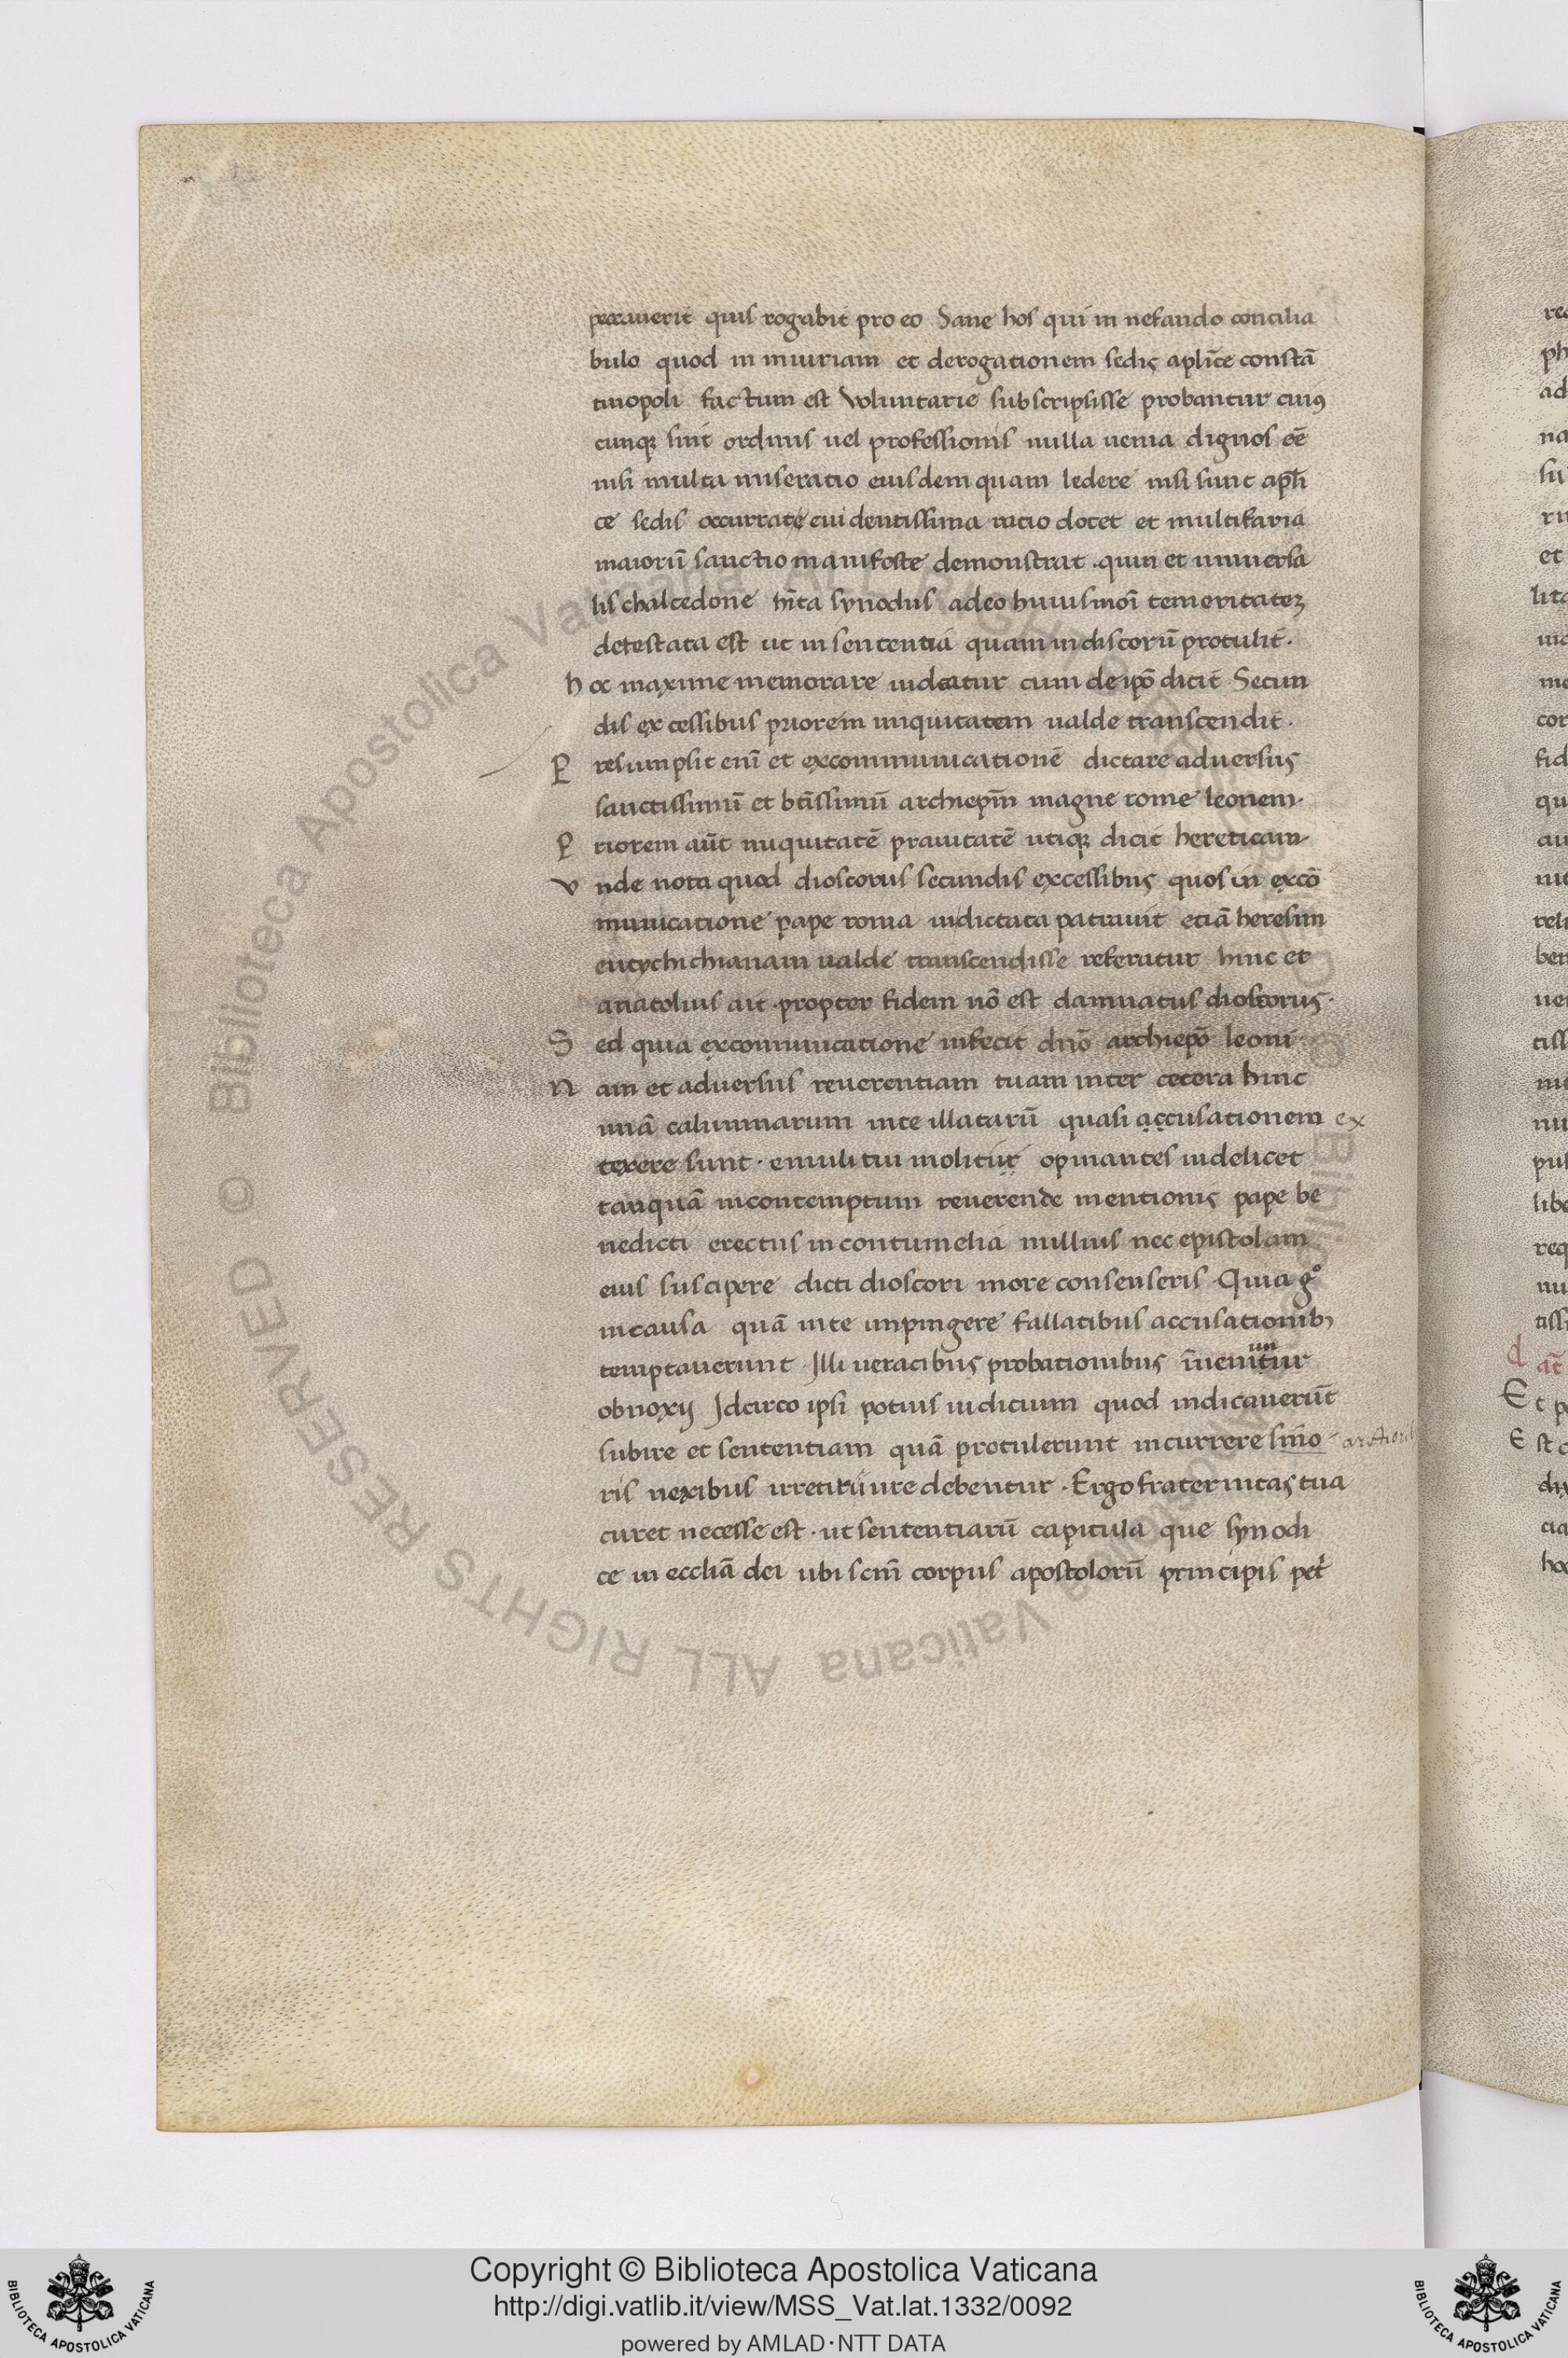 peccauerit quis rogabit pro eo Sane hos qui in nefando concilia
bulo quod in iniuriam et derogationem sedis aplice constā
tinopoli factum est voluntarie subscripsisse probantur cuiꝰ
cunqꝫ sint ordinis uel professionis nulla uenia dignos eē
nisi multa miseratio eiusdem quam ledere nisi sunt apli
ce sedis occurrate euidentissima ratio docet et multifaria
maiorū sanctio manifeste demonstrat . quin et uniuersa
lis chalcedone hīta synodus adeo huiusmoi temeritateꝫ
detestata est ut in sententia quam in discorū protulit .
h oc maxime memorare uideatur cum de ipō dicit Secun
dis excessibus priorem iniquitatem ualde transcendit .
P resumpsit eni et excommunicationē dictare aduersus
sanctissimū et btissimū archiepm magne rome leonem .
P riorem aūt iniquitatē prauitatē utiqꝫ dicit hereticam
v nde nota quod dioscorus secundis excessibus quos in excō
municatione pape roma indictata patrauit etiā heresim
eutychichianam ualde transcendisse referatur hinc et
anatolius ait . propter fidem nō est damnatus dioscorus .
S ed quia excommunicatione infecit dnō archiepō leoni .
N am et aduersus reuerentiam tuam inter cetera hinc
unā calumniarum inte illatarū quasi accusationem ex
texere sunt . emuli tui molitur opinantes uidelicet
tanquā incontemptum reuerende mentionis pape be
nedicti erectus in contumelia nullius nec epistolam
eius suscipere dicti dioscori more consenseris . Quia gº
in causa quā inte impingere fallacibus accusationibꝫ
temptauerunt . Illi ueracibus probationibus īueniūtur
obnoxij Idcirco ipsi potius iudicium quod indicauerūt
subire et sententiam quā protulerunt incurrere sino
ris nexibus irretiti iure debentur . Ergo fraternitas tua
curet necesse est . ut sententiarū capitula que synodi
ce in eccliā dei ubi scm corpus apostolorū principis petri
Copyright © Biblioteca Apostolica Vaticana
http://digi.vatlib.it/view/MSS_Vat.lat.1332/0092
powered by AMLAD·NTT DATA
BIBLIOTECA APOSTOLICA VATICANA
BIBLIOTECA APOSTOLICA VATICANA